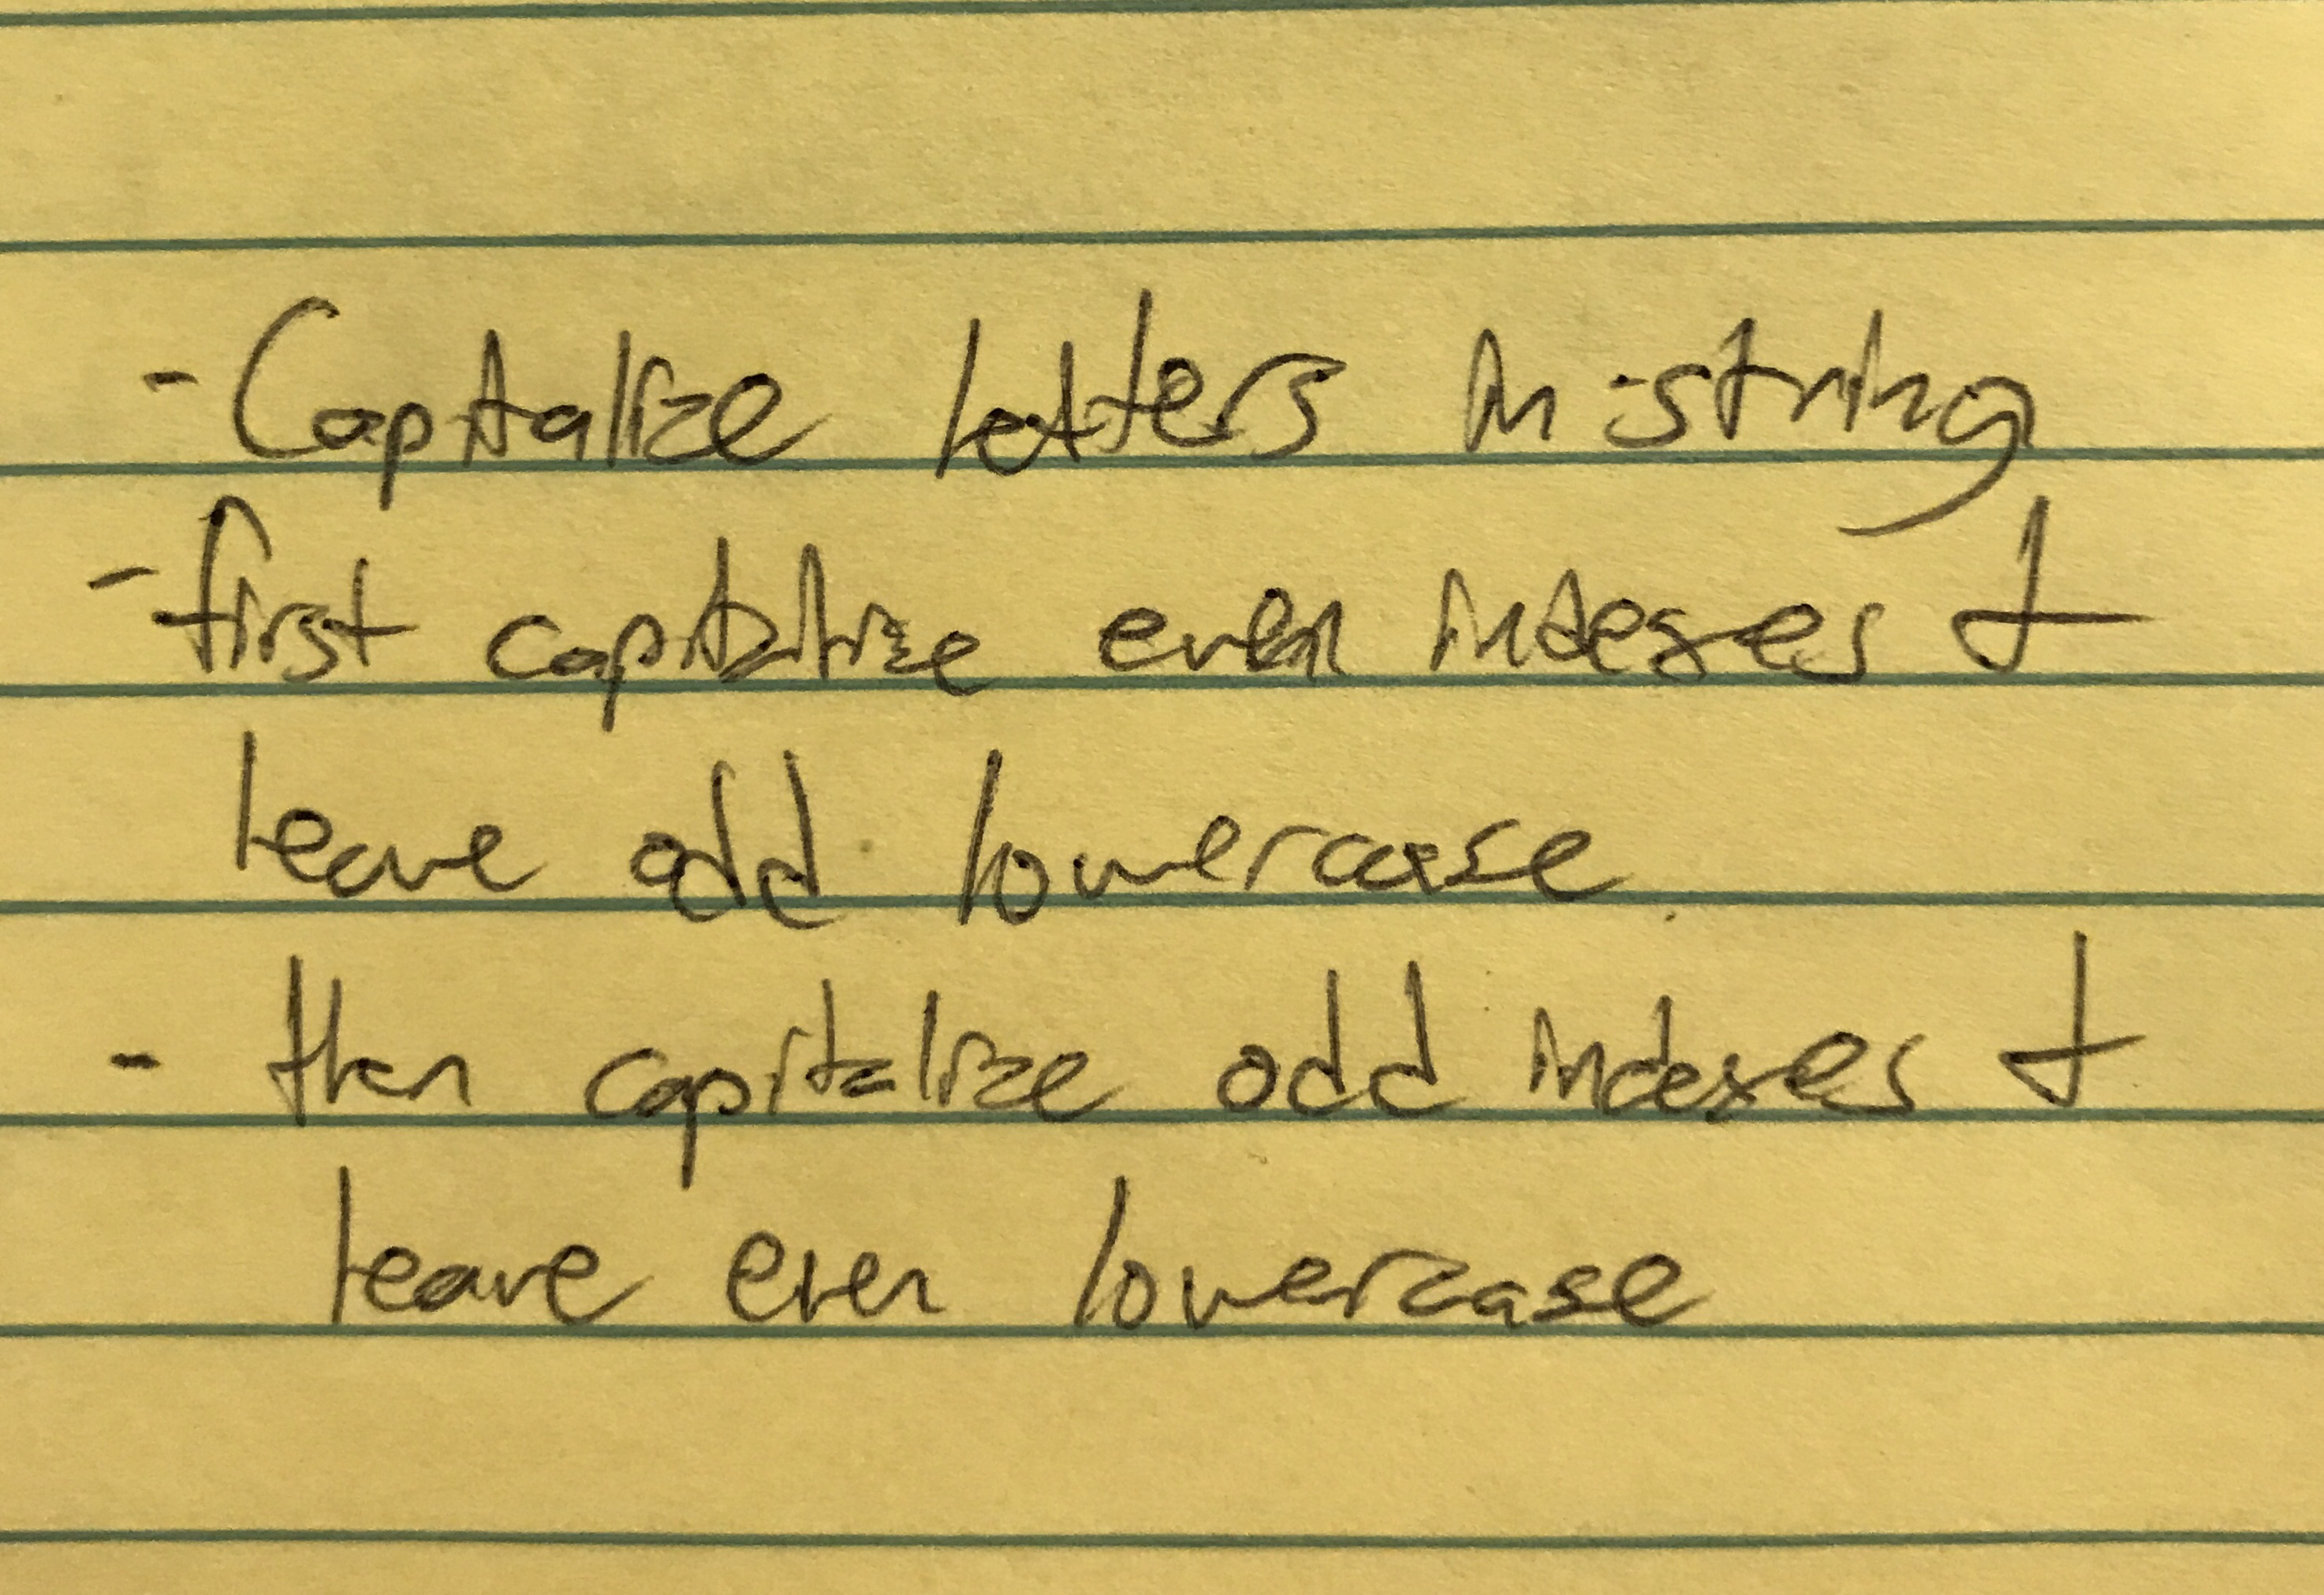 - Capitalize letters in string
- first capitalize even indexes +
leave odd lowercase
- then capitalize odd indexes +
leave even lowercase